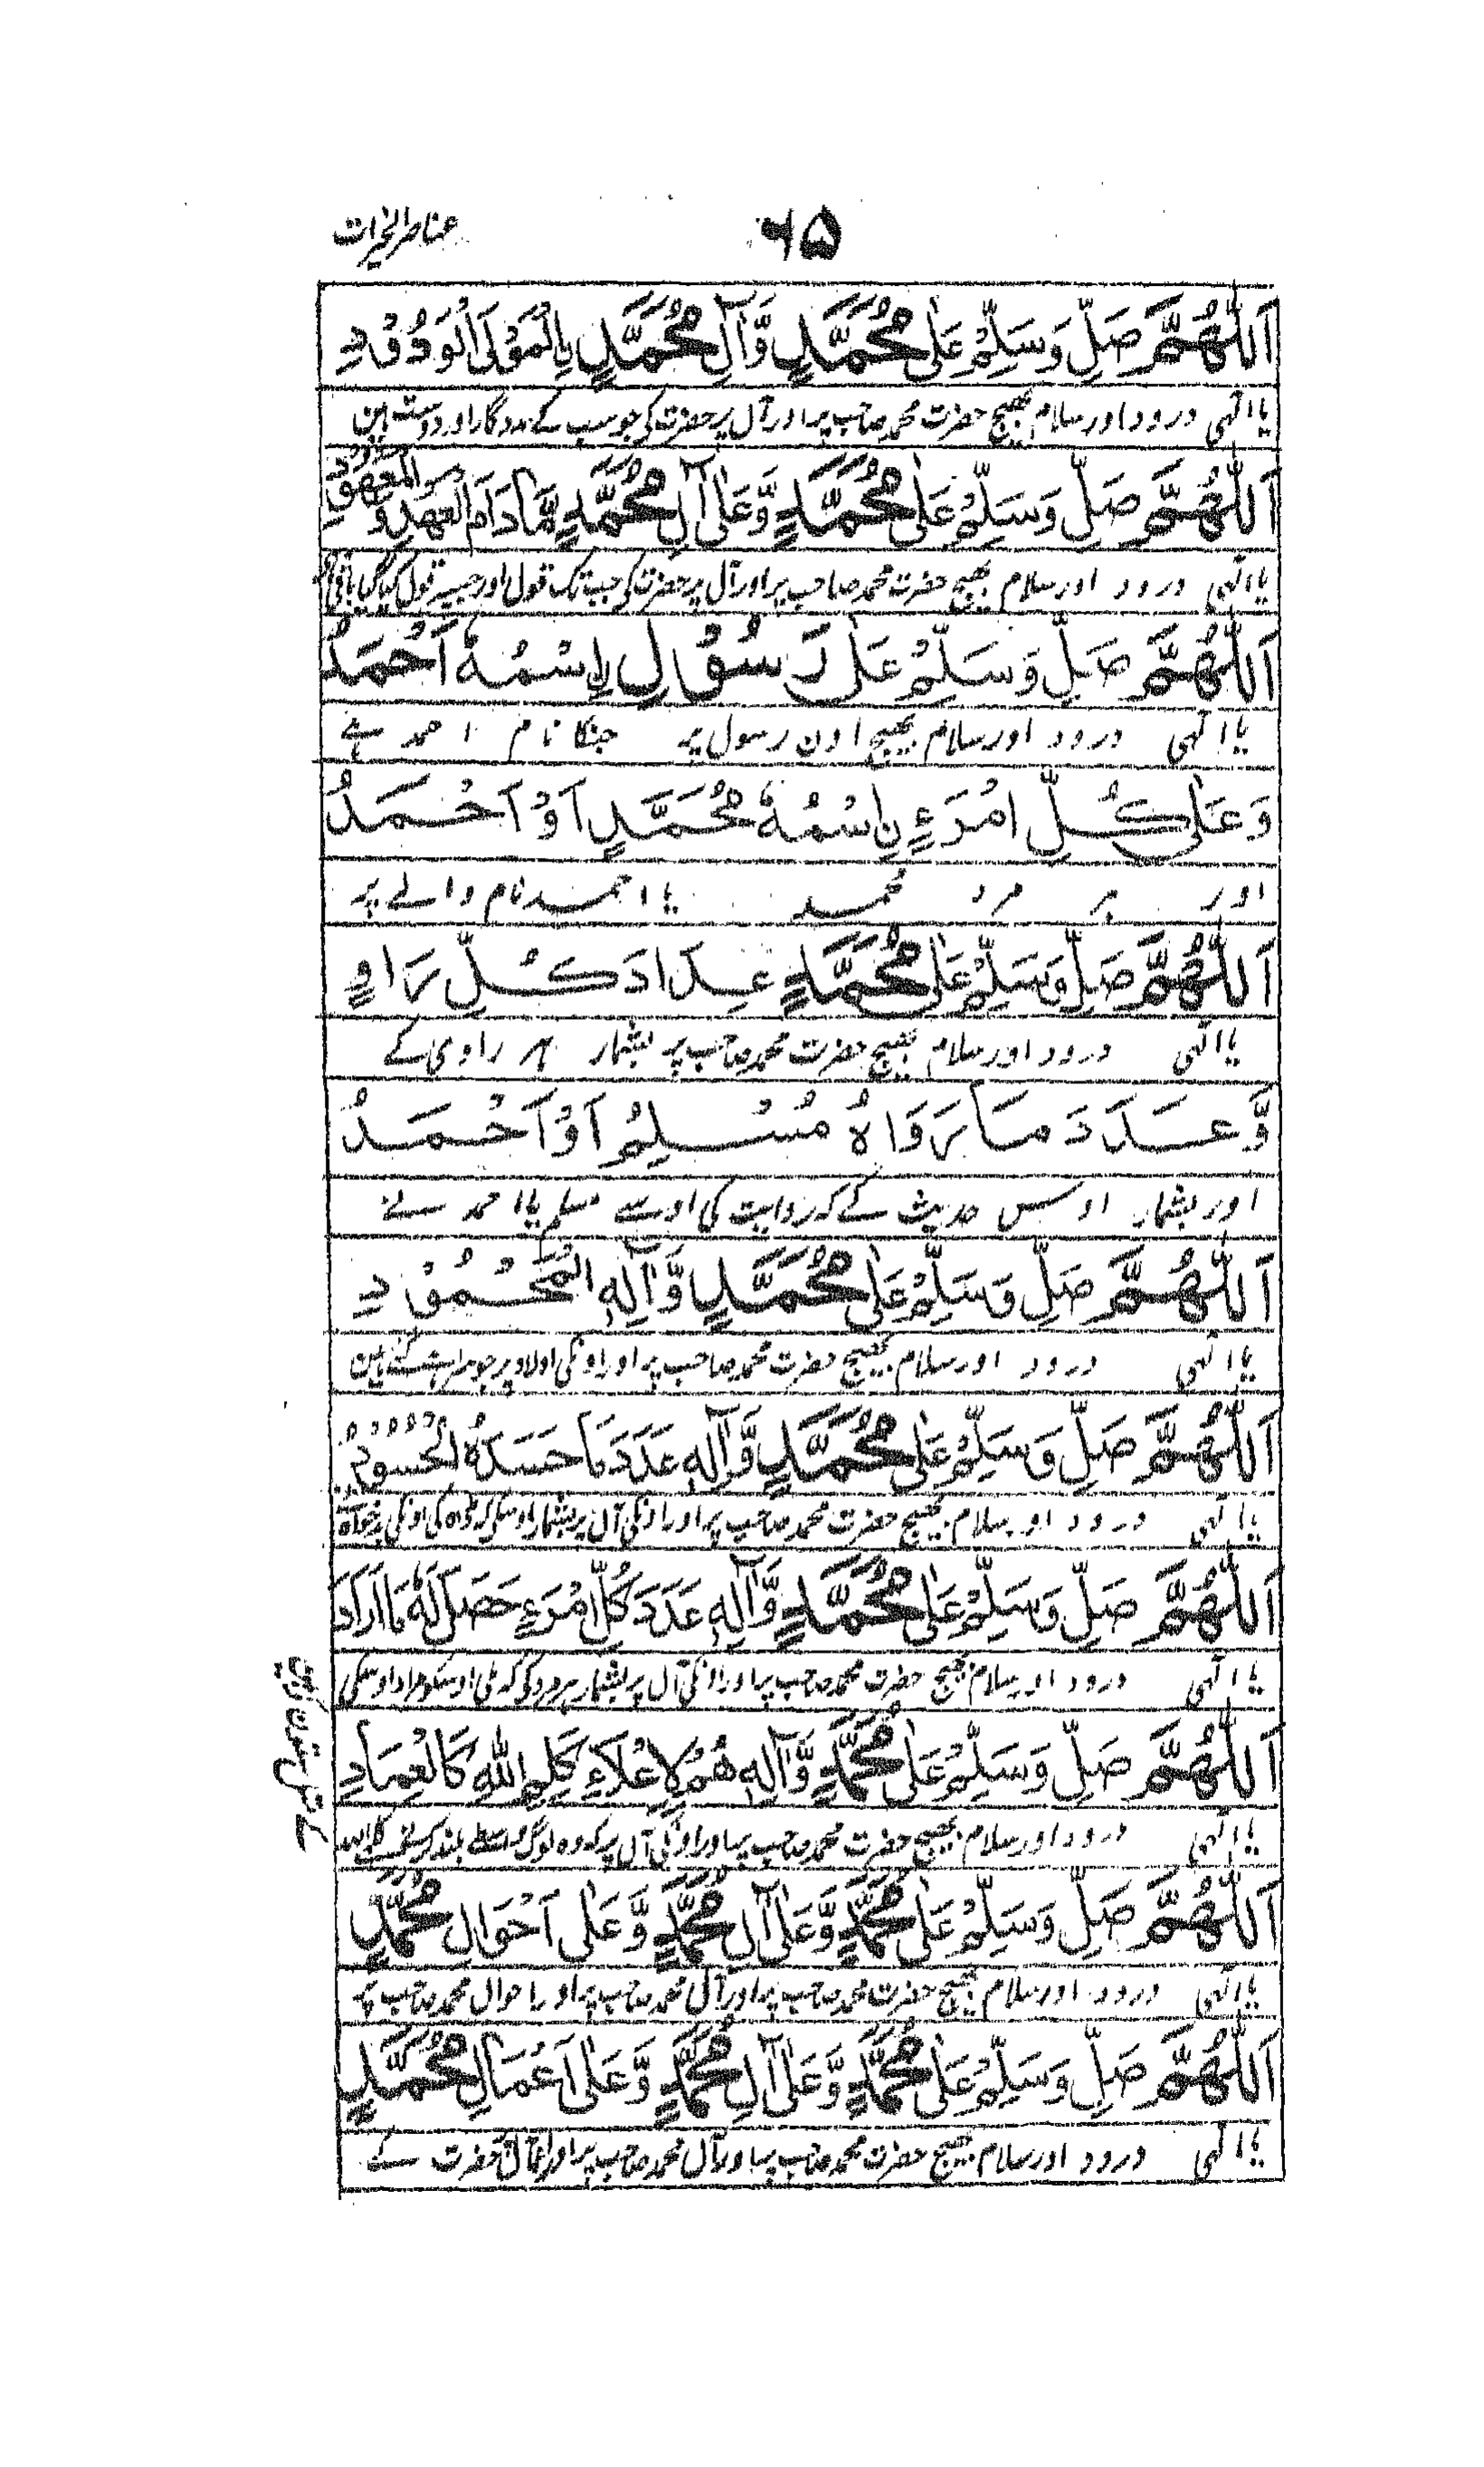 ۶۵
عناصر الخیرات
اَللّٰهُمَّ صَلِّ وَسَلِّمْ عَلٰى مُحَمَّدٍ وَّاٰلِ مُحَمَّدٍ بِالْمَوْلَى الْوَدُوْدِ
یا الٰہی درود اور سلام بھیج حضرت محمد صاحب پر اور آل پر حضرت کی جو سب کے مددگار اور دوست ہین
اَللّٰهُمَّ صَلِّ وَسَلِّمْ عَلٰى مُحَمَّدٍ وَّعَلٰى اٰلِ مُحَمَّدٍ مَّا دَامَ الْعَهْدُ وَالْمَعْهُوْدِ
یا الٰہی درود اور سلام بھیج حضرت محمد صاحب پر اور آل پر حضرت کی جب تک قول اور جسپر قول کیا گیا باقی
اَللّٰهُمَّ صَلِّ وَسَلِّمْ عَلٰى رَسُوْلٍ اِسْمُهٗ اَحْمَدُ
یا الٰہی درود اور سلام بھیج اون رسول پر جنکا نام احمد ہے
وَعَلٰى كُلِّ امْرَءٍ نِ اسْمُهٗ مُحَمَّدٍ اَوْ اَحْمَدُ
اور ہر مرد محمد یا احمد نام والے پر
اَللّٰهُمَّ صَلِّ وَسَلِّمْ عَلٰى مُحَمَّدٍ عِدَادَ كُلِّ رَاوٍ
یا الٰہی درود اور سلام بھیج حضرت محمد صاحب پر بشمار ہر راوی کے
وَّعَدَدَ مَا رَوَاهُ مُسْلِمٌ اَوْ اَحْمَدُ
اور بشمار اوس حدیث کے کہ روایت کی اوسے مسلم یا احمد نے
اَللّٰهُمَّ صَلِّ وَسَلِّمْ عَلٰى مُحَمَّدٍ وَّاٰلِهِ الْمَحْمُوْدِ
یا الٰہی درود اور سلام بھیج حضرت محمد صاحب پر اور اونکی اولاد پر جو سراہے گئے ہین
اَللّٰهُمَّ صَلِّ وَسَلِّمْ عَلٰى مُحَمَّدٍ وَّاٰلِهٖ عَدَدَ مَا حَسَدَهُ الْحُسُوْدُ
یا الٰہی درود اور سلام بھیج حضرت محمد صاحب پر اور اونکی آل پر بشمار اوسکی کہ ڈاہ کی اونکی
اَللّٰهُمَّ صَلِّ وَسَلِّمْ عَلٰى مُحَمَّدٍ وَّاٰلِهٖ عَدَدَ كُلِّ امْرَءٍ حَصَلَ لَهٗ مَا اَرَادَ
یا الٰہی درود اور سلام بھیج حضرت محمد صاحب پر اور اونکی آل پر بشمار ہر مرد کی کہ ملی اوسکو مراد اوسکی
اَللّٰهُمَّ صَلِّ وَسَلِّمْ عَلٰى مُحَمَّدٍ وَّاٰلِهٖ هُمْ لِاِعْلَاءِ كَلِمِ اللّٰهِ كَالْعِمَادِ
یا الٰہی درود اور سلام بھیج حضرت محمد صاحب پر اور اونکی آل پر کہ وہ لوگ واسطے بلند کرنے کلمہ اللہ
کے مثل ستون کے ہین
اَللّٰهُمَّ صَلِّ وَسَلِّمْ عَلٰى مُحَمَّدٍ وَّعَلٰى اٰلِ مُحَمَّدٍ وَّعَلٰى اَحْوَالِ مُحَمَّدٍ
یا الٰہی درود اور سلام بھیج حضرت محمد صاحب پر اور آل محمد صاحب پر اور احوال محمد صاحب پر
اَللّٰهُمَّ صَلِّ وَسَلِّمْ عَلٰى مُحَمَّدٍ وَّعَلٰى اٰلِ مُحَمَّدٍ وَّعَلٰى اَعْمَالِ مُحَمَّدٍ
یا الٰہی درود اور سلام بھیج حضرت محمد صاحب پر اور آل محمد صاحب پر اور اعمال حضرت کے